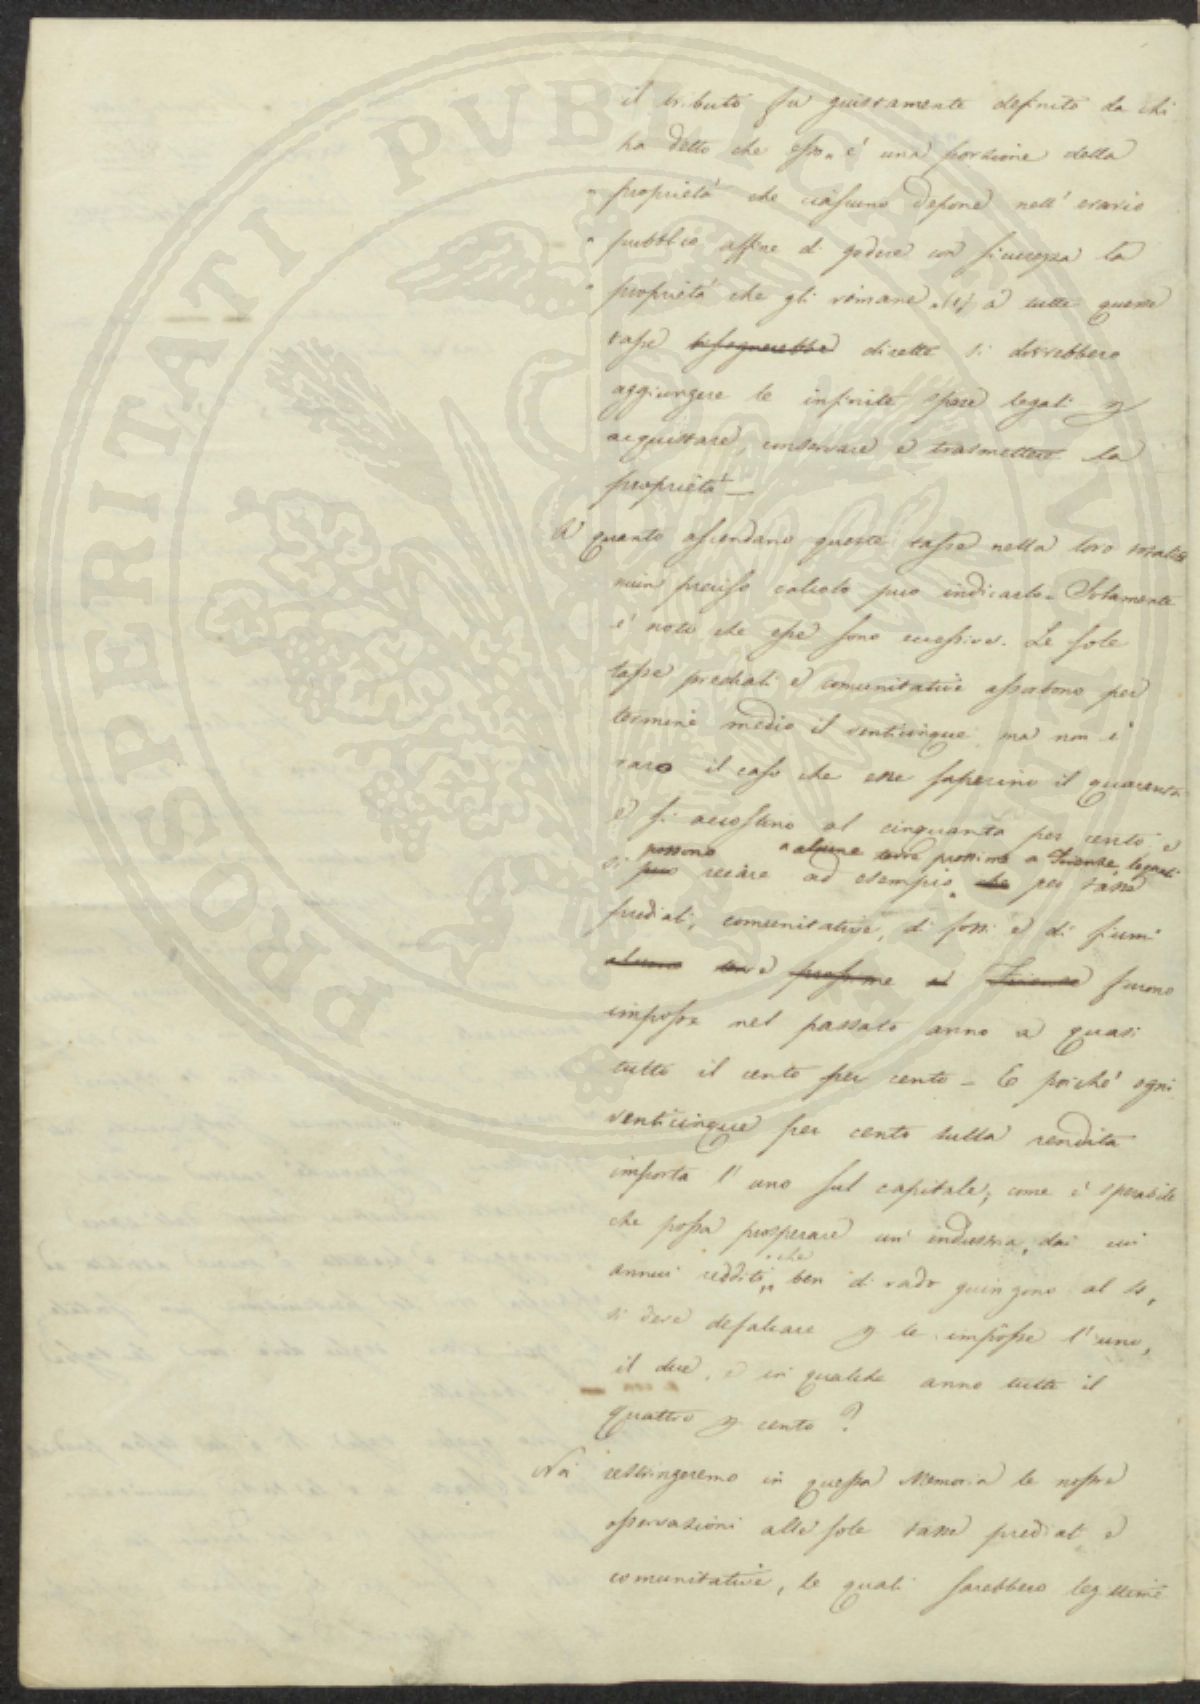 il tributo fu giustamente definito da chi
ha detto che esso „ é una porzione della
„ proprietà che ciascuno depone nell' erario
„ pubblico affine di godere con sicurezza la
„ proprietà che gli rimane „ (1) a tutte queste
tasse bisognerebbe dirette si dovrebbero
aggiungere le infinite spese legali p
acquistare, conservare e trasmettere la
proprietà —
A quanto ascendano queste tasse nella loro totalità
niun preciso calcolo può indicarlo. Solamente
é noto che esse sono eccessive. Le sole
tasse prediali e comunitative assorbono per
termine medio il venticinque, ma non é
raro il caso che esse superino il quaranta
e si accostino al cinquanta per cento; e
possono a alcune terre prossime a Firenze, le quali
si può recare ad esempio, che per tasse
prediali, comunitative, di fossi e di fiumi
alcune terre prossime a Firenze furono
imposte nel passato anno a quasi
tutto il cento per cento — E poiché ogni
venticinque per cento sulla rendita
importa l' uno sul capitale; come é sperabile
che possa prosperare un' industria, dai cui
che
annui redditi, ben di rado giungono al 4,
si deve defalcare p le imposte l' uno,
il due, e in qualche anno tutto il
quattro p cento?
Noi restringeremo in questa Memoria le nostre
osservazioni alle sole tasse prediali e
comunitative, le quali sarebbero legittime
PROSPERITATI PVBLICAE